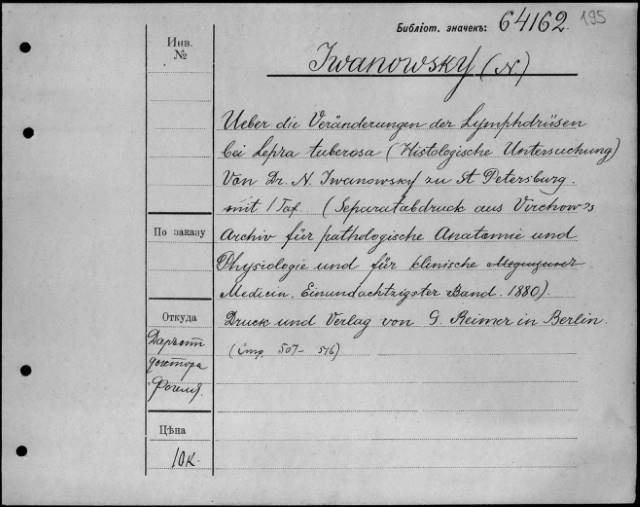 Библіот. значекъ: 64162. 195
Инв.
№
Iwanowsky (N.)
Ueber die Veränderungen der Lymphdrüsen
bei Lepra tuberosa (Histologische Untersuchung)
Von Dr. N. Iwanowsky zu St Petersburg.
mit 1 Taf. (Separatabdruck aus Virchow's
По заказу
Archiv für pathologische Anatomie und
Physiologie und für klinische
Medicin. Einundachtzigster Band. 1880).
Откуда
Druck und Verlag von G. Reimer in Berlin.
Даръ отъ
доктора
(стр. 507-516)
Цѣна
10к.